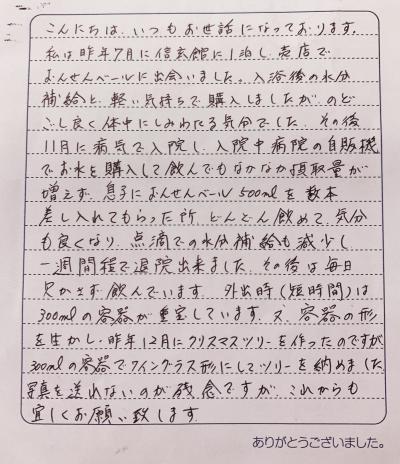 こんにちは、いつもお世話になっております。
私は昨年7月に信玄館に1泊し、売店で
おんせんベールに出会いました。入浴後の水分
補給と、軽い気持ちで購入しましたが、のど
ごし良く体中にしみわたる気分でした。その後
11月に病気で入院し、入院中病院の自販機
でお水を購入して飲んでもなかなか摂取量が
増えず、息子におんせんベール500mlを数本
差し入れてもらった所、どんどん飲めて、気分
も良くなり、点滴での水分補給も減少し
一週間程で退院出来ました。その後は毎日
欠かさず飲んでいます。外出時(短時間)は
300mlの容器が重宝しています。又、容器の形
を生かし、昨年12月にクリスマスツリーを作ったのですが
300mlの容器でワイングラス形にして、ツリーを納めました
写真を送れないのが残念ですが、これからも
宜しくお願い致します。
ありがとうございました。